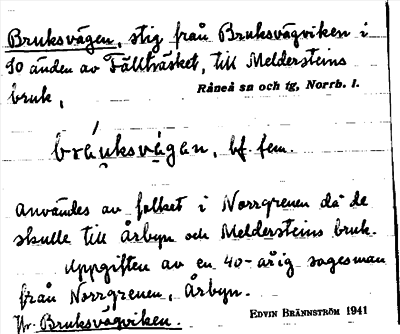 Bruksvägen, stig från Bruksvägviken i
SO änden av Fällträsket, till Meldersteins
bruk.
Råneå sn och tg, Norrb. l.
bràuksvägan, bf. fem.
Användes av folket i Norrgrenen då de
skulle till Årbyn och Meldersteins bruk.
Uppgiften av en 40-årig sagesman
från Norrgrenen, Årbyn.
Jfr. Bruksvägviken.
EDVIN BRÄNNSTRÖM 1941